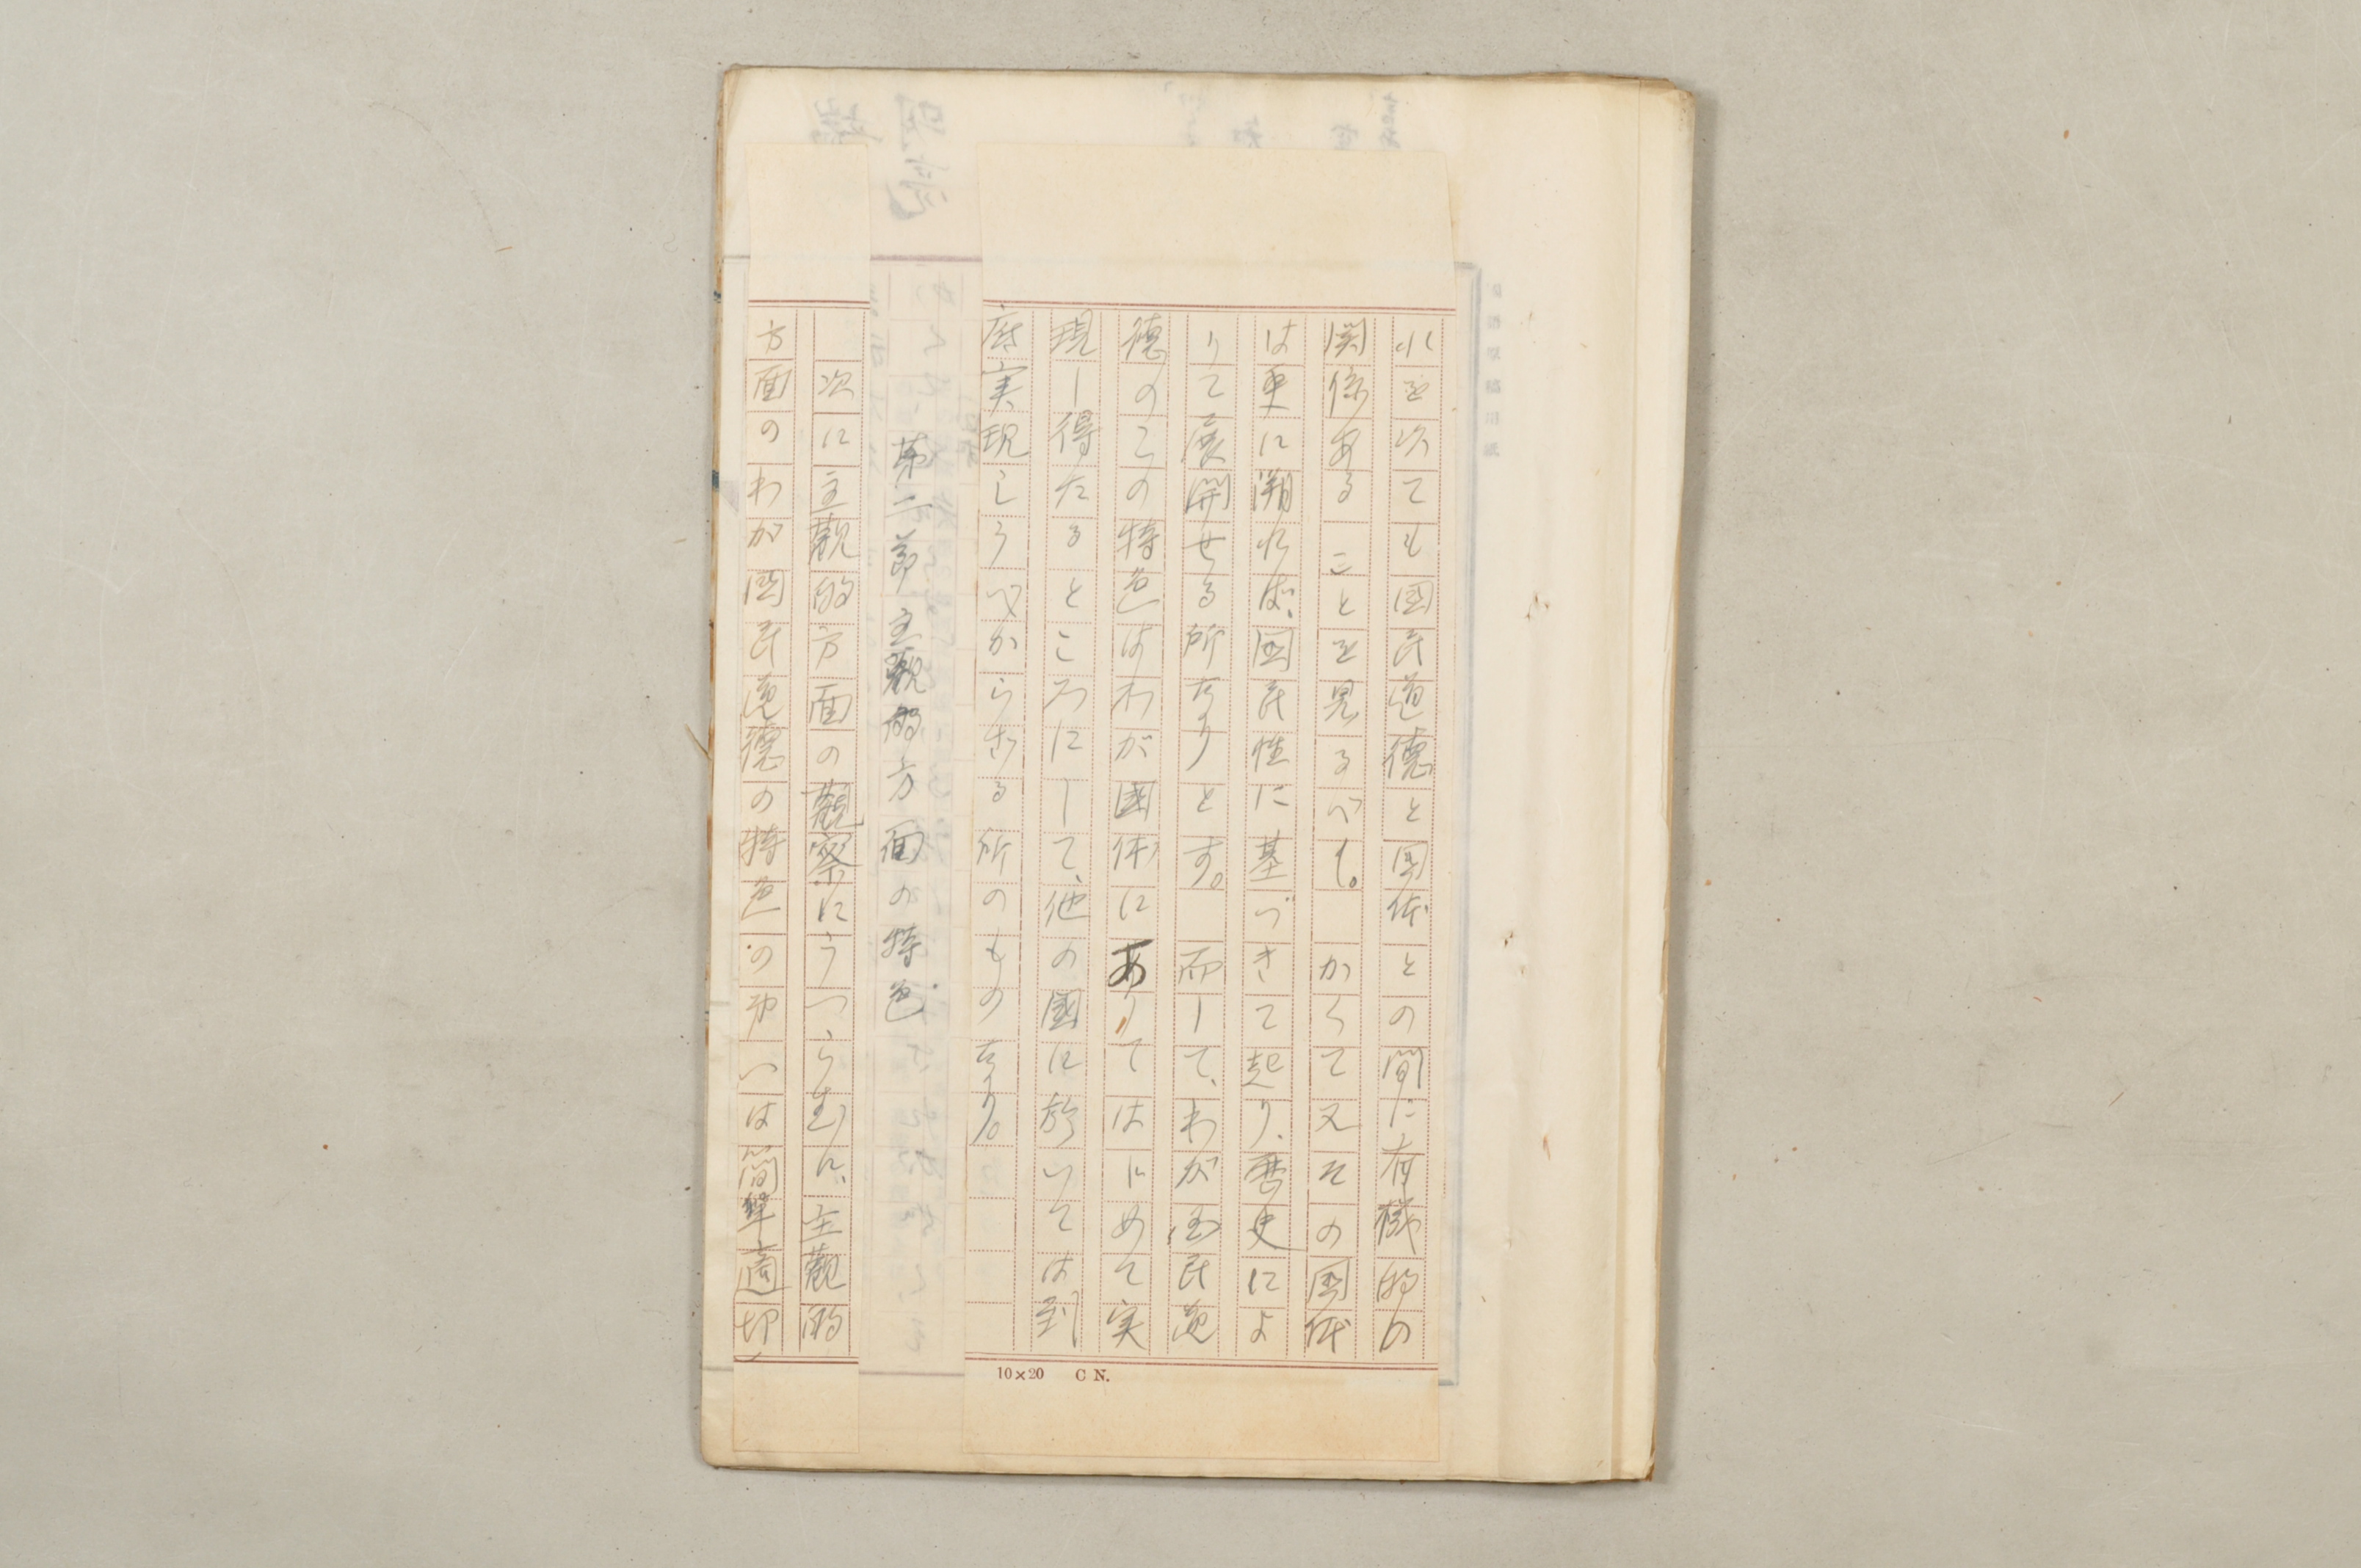 れを以ても国民道徳と国体との間に有機的の
関係あることを見るべし。　かくて又その国体
は更に溯れば、国民性に基づきて起り、歴史によ
りて展開せる所なりとす。　而して、わが国民道
徳のこの特色はわが國体にありてはじめて実
現し得たるところにして、他の國に於いては到
底実現しうべからざる所のものなり。
第二節　主観的方面の特色
次に主観的方面の観察にうつらむに、主観的
方面のわが国民道徳の特色の第一は簡單適切
10×20　C N.